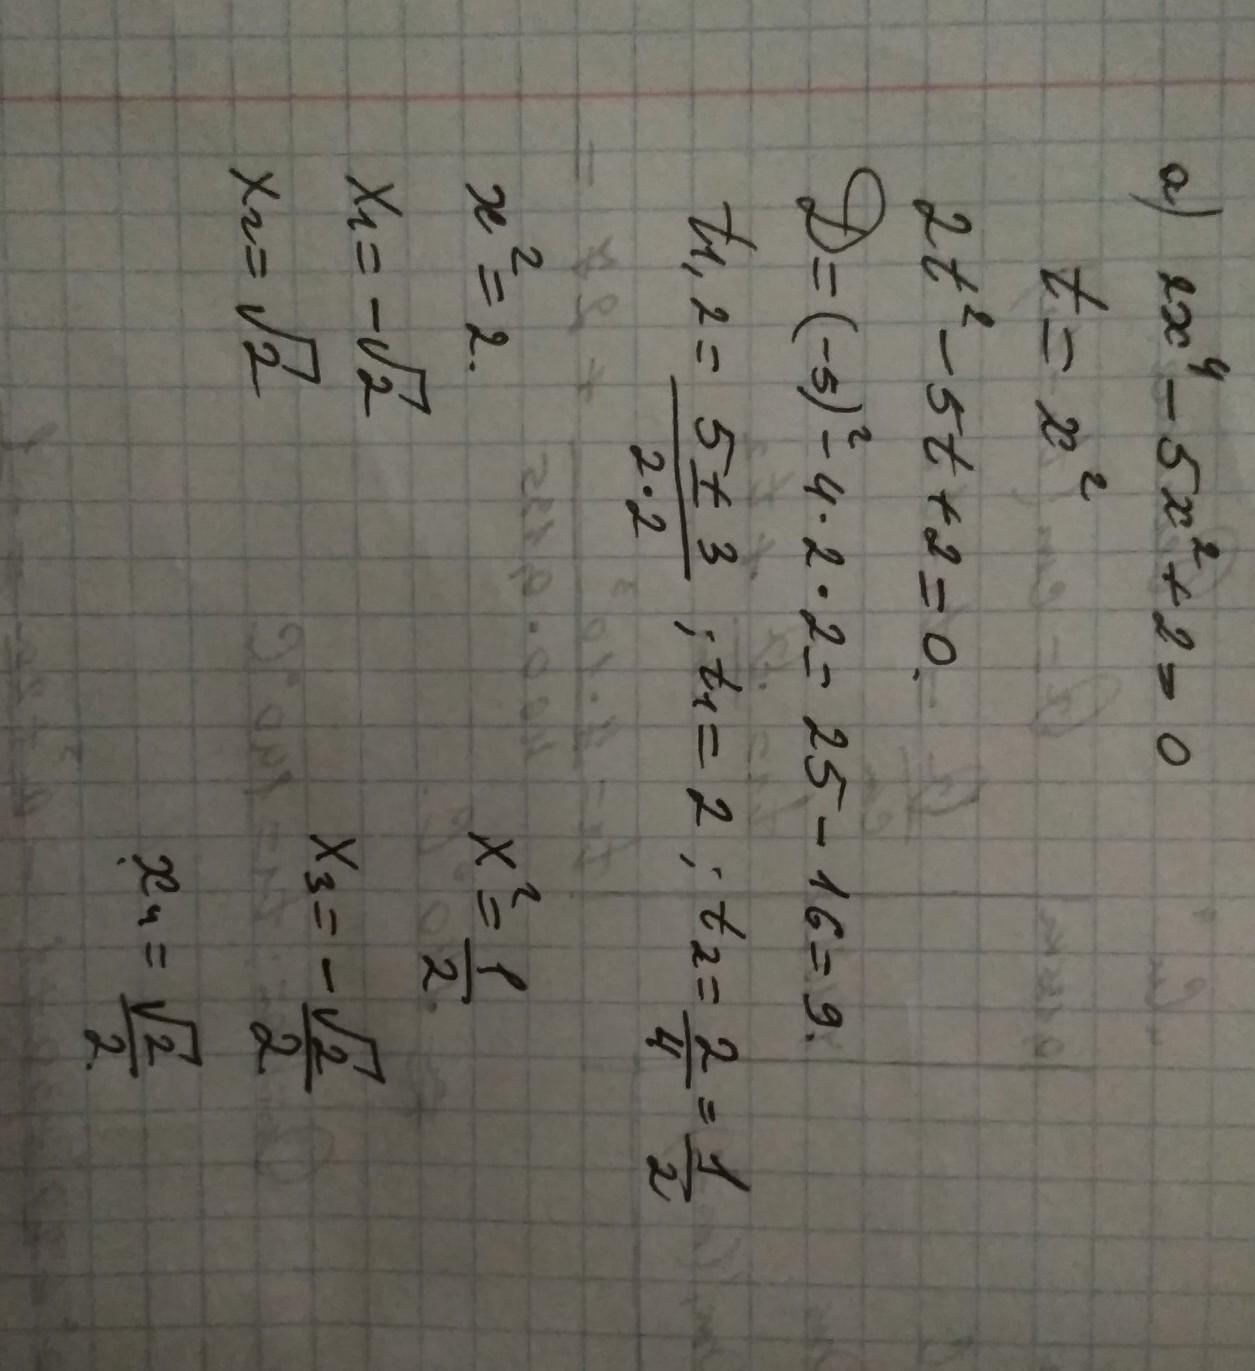 а) 2x⁴ - 5x² + 2 = 0
t = x²
2t² - 5t + 2 = 0.
D = (-5)² - 4·2·2 = 25 - 16 = 9.
t₁,₂ = (5 ± 3)/(2·2) ; t₁ = 2 ; t₂ = 2/4 = 1/2
x² = 2. x² = 1/2.
x₁ = -√2 x₃ = -√2/2
x₂ = √2 x₄ = √2/2.